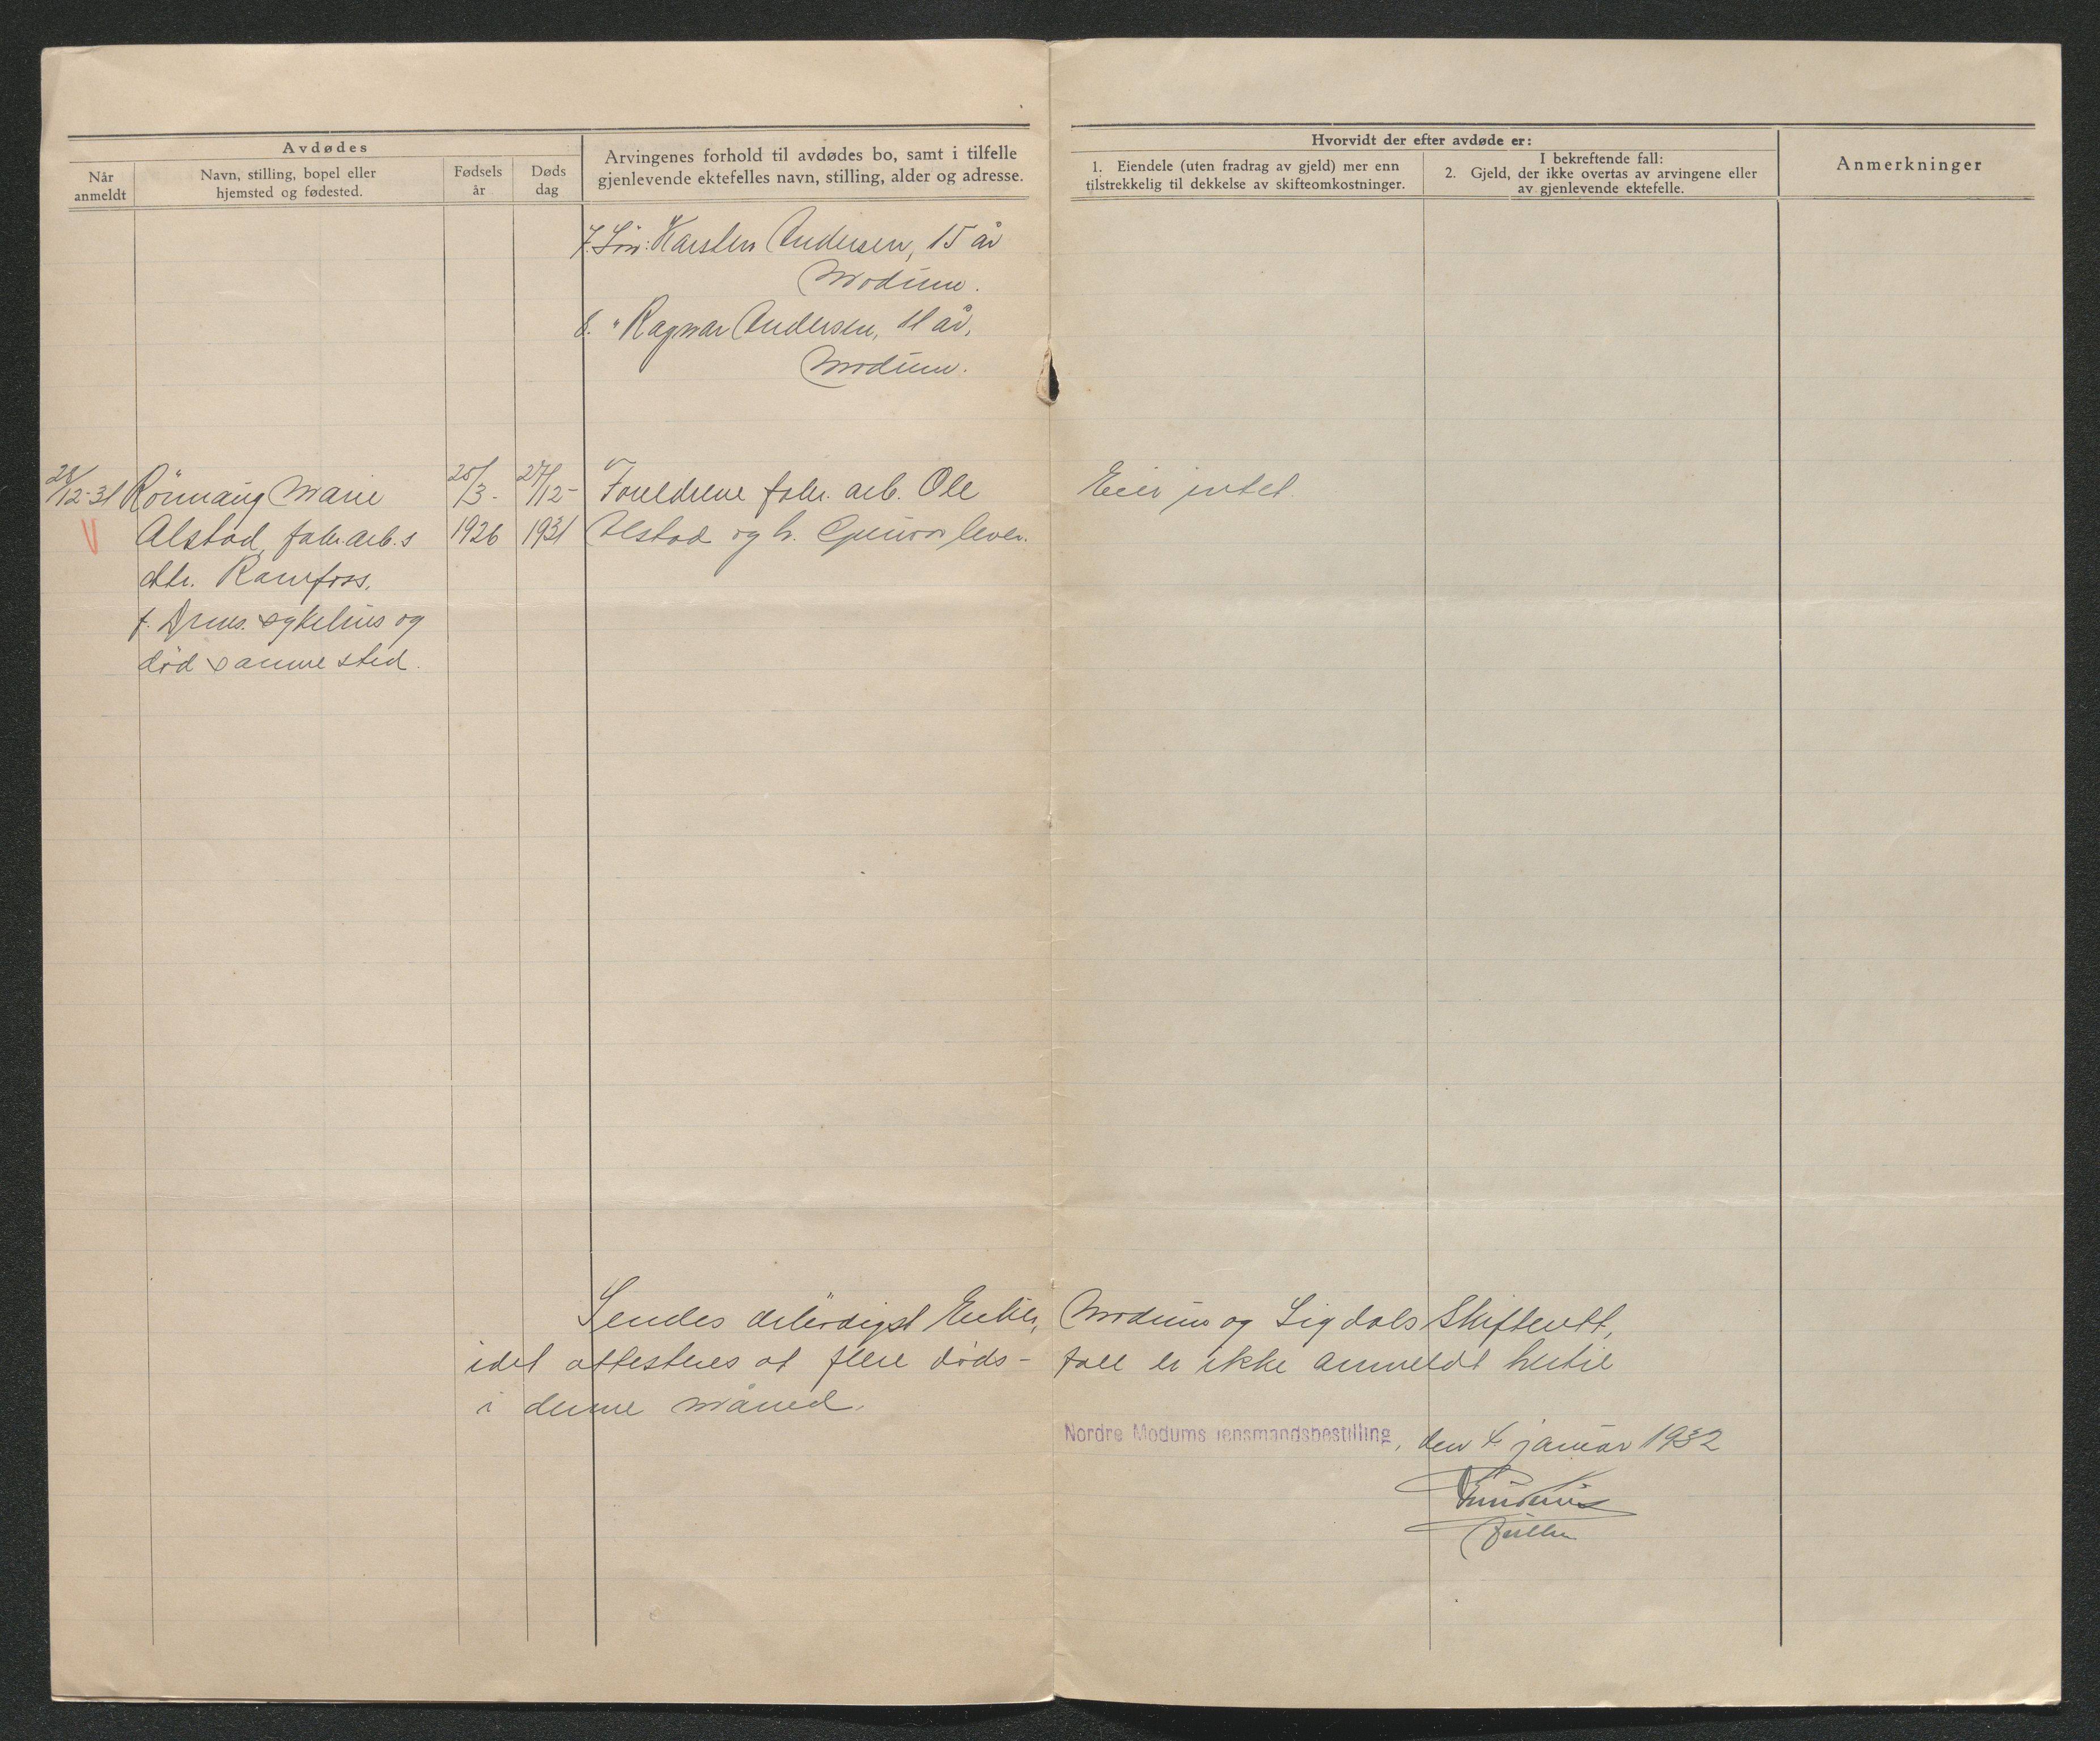 Avdødes
Når
anmeldt
Navn, stilling, bopel eller
hjemsted og fødested.
Fødsels
år
Døds
dag
Arvingenes forhold til avdødes bo, samt i tilfelle
gjenlevende ektefelles navn, stilling, alder og adresse.
Hvorvidt der efter avdøde er:
1. Eiendele (uten fradrag av gjeld) mer enn
tilstrekkelig til dekkelse av skifteomkostninger.
I bekreftende fall:
2. Gjeld, der ikke overtas av arvingene eller
av gjenlevende ektefelle.
Anmerkninger
7. Søn: Karsten Andersen, 15 år
Modum.
8. " Ragnar Andersen, 11 år,
Modum.
28/12-31 Rönnaug Marie
Alstad, fabr.arb.s
dtr. Ramfoss,
f. Drms. sykehus og
död samme sted.
25/3-
1926
27/12-
1931
Foreldrene fabr. arb. Ole
Alstad og h. lever.
Eier intet.
Sendes ærbödigst Eiker, Modum og Sigdals Skifterett,
idet attesteres at flere døds- fall er ikke anmeldt hertil
i denne måned.
Nordre Modums lensmandsbestilling, den 4. januar 1932